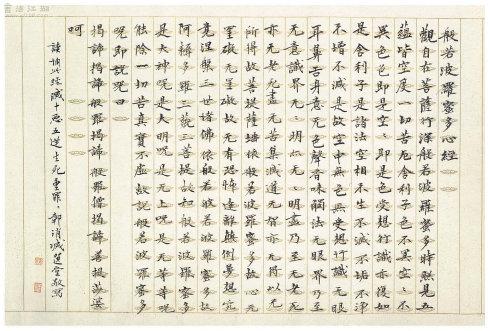 般若波羅蜜多心經
觀自在菩薩行深般若波羅蜜多時照見五
蘊皆空度一切苦厄舍利子色不異空〻不
異色色即是空〻即是色受想行識亦復如
是舍利子是諸法空相不生不滅不垢不淨
不增不減是故空中無色無受想行識无眼
耳鼻舌身意无色聲香味觸法无眼界乃至
无意識界无〻明亦无〻明盡乃至无老死
亦无老死盡无苦集滅道无智亦无得以无
所得故菩提薩埵依般若波羅蜜多故心无
罣礙无罣礙故无有恐怖遠離顛倒夢想究
竟涅槃三世諸佛依般若波羅蜜多故得
阿耨多羅三藐三菩提故知般若波羅蜜多
是大神呪是大明呪是无上呪是无等等呪
能除一切苦真實不虛故說般若波羅蜜多
呪即說呪曰
揭諦揭諦般羅揭諦般羅僧揭諦菩提薩婆
呵
誦此經滅十惡五逆重罪〻部消滅敬寫
書法江湖